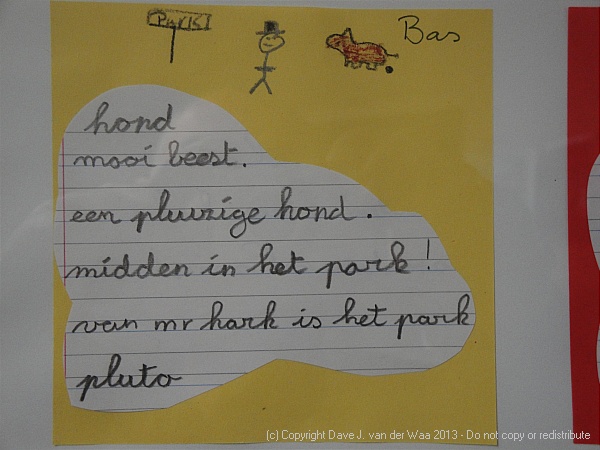 PARK
Bas
hond
mooi beest.
een pluizige hond.
midden in het park!
van mr hark is het park
pluto
(c) Copyright Dave J. van der Waa 2013 - Do not copy or redistribute